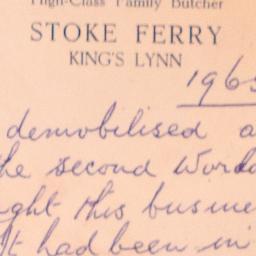 High-Class Family Butcher
STOKE FERRY
KING'S LYNN
196
demobilised a
he second World
ght this busine
It had been in